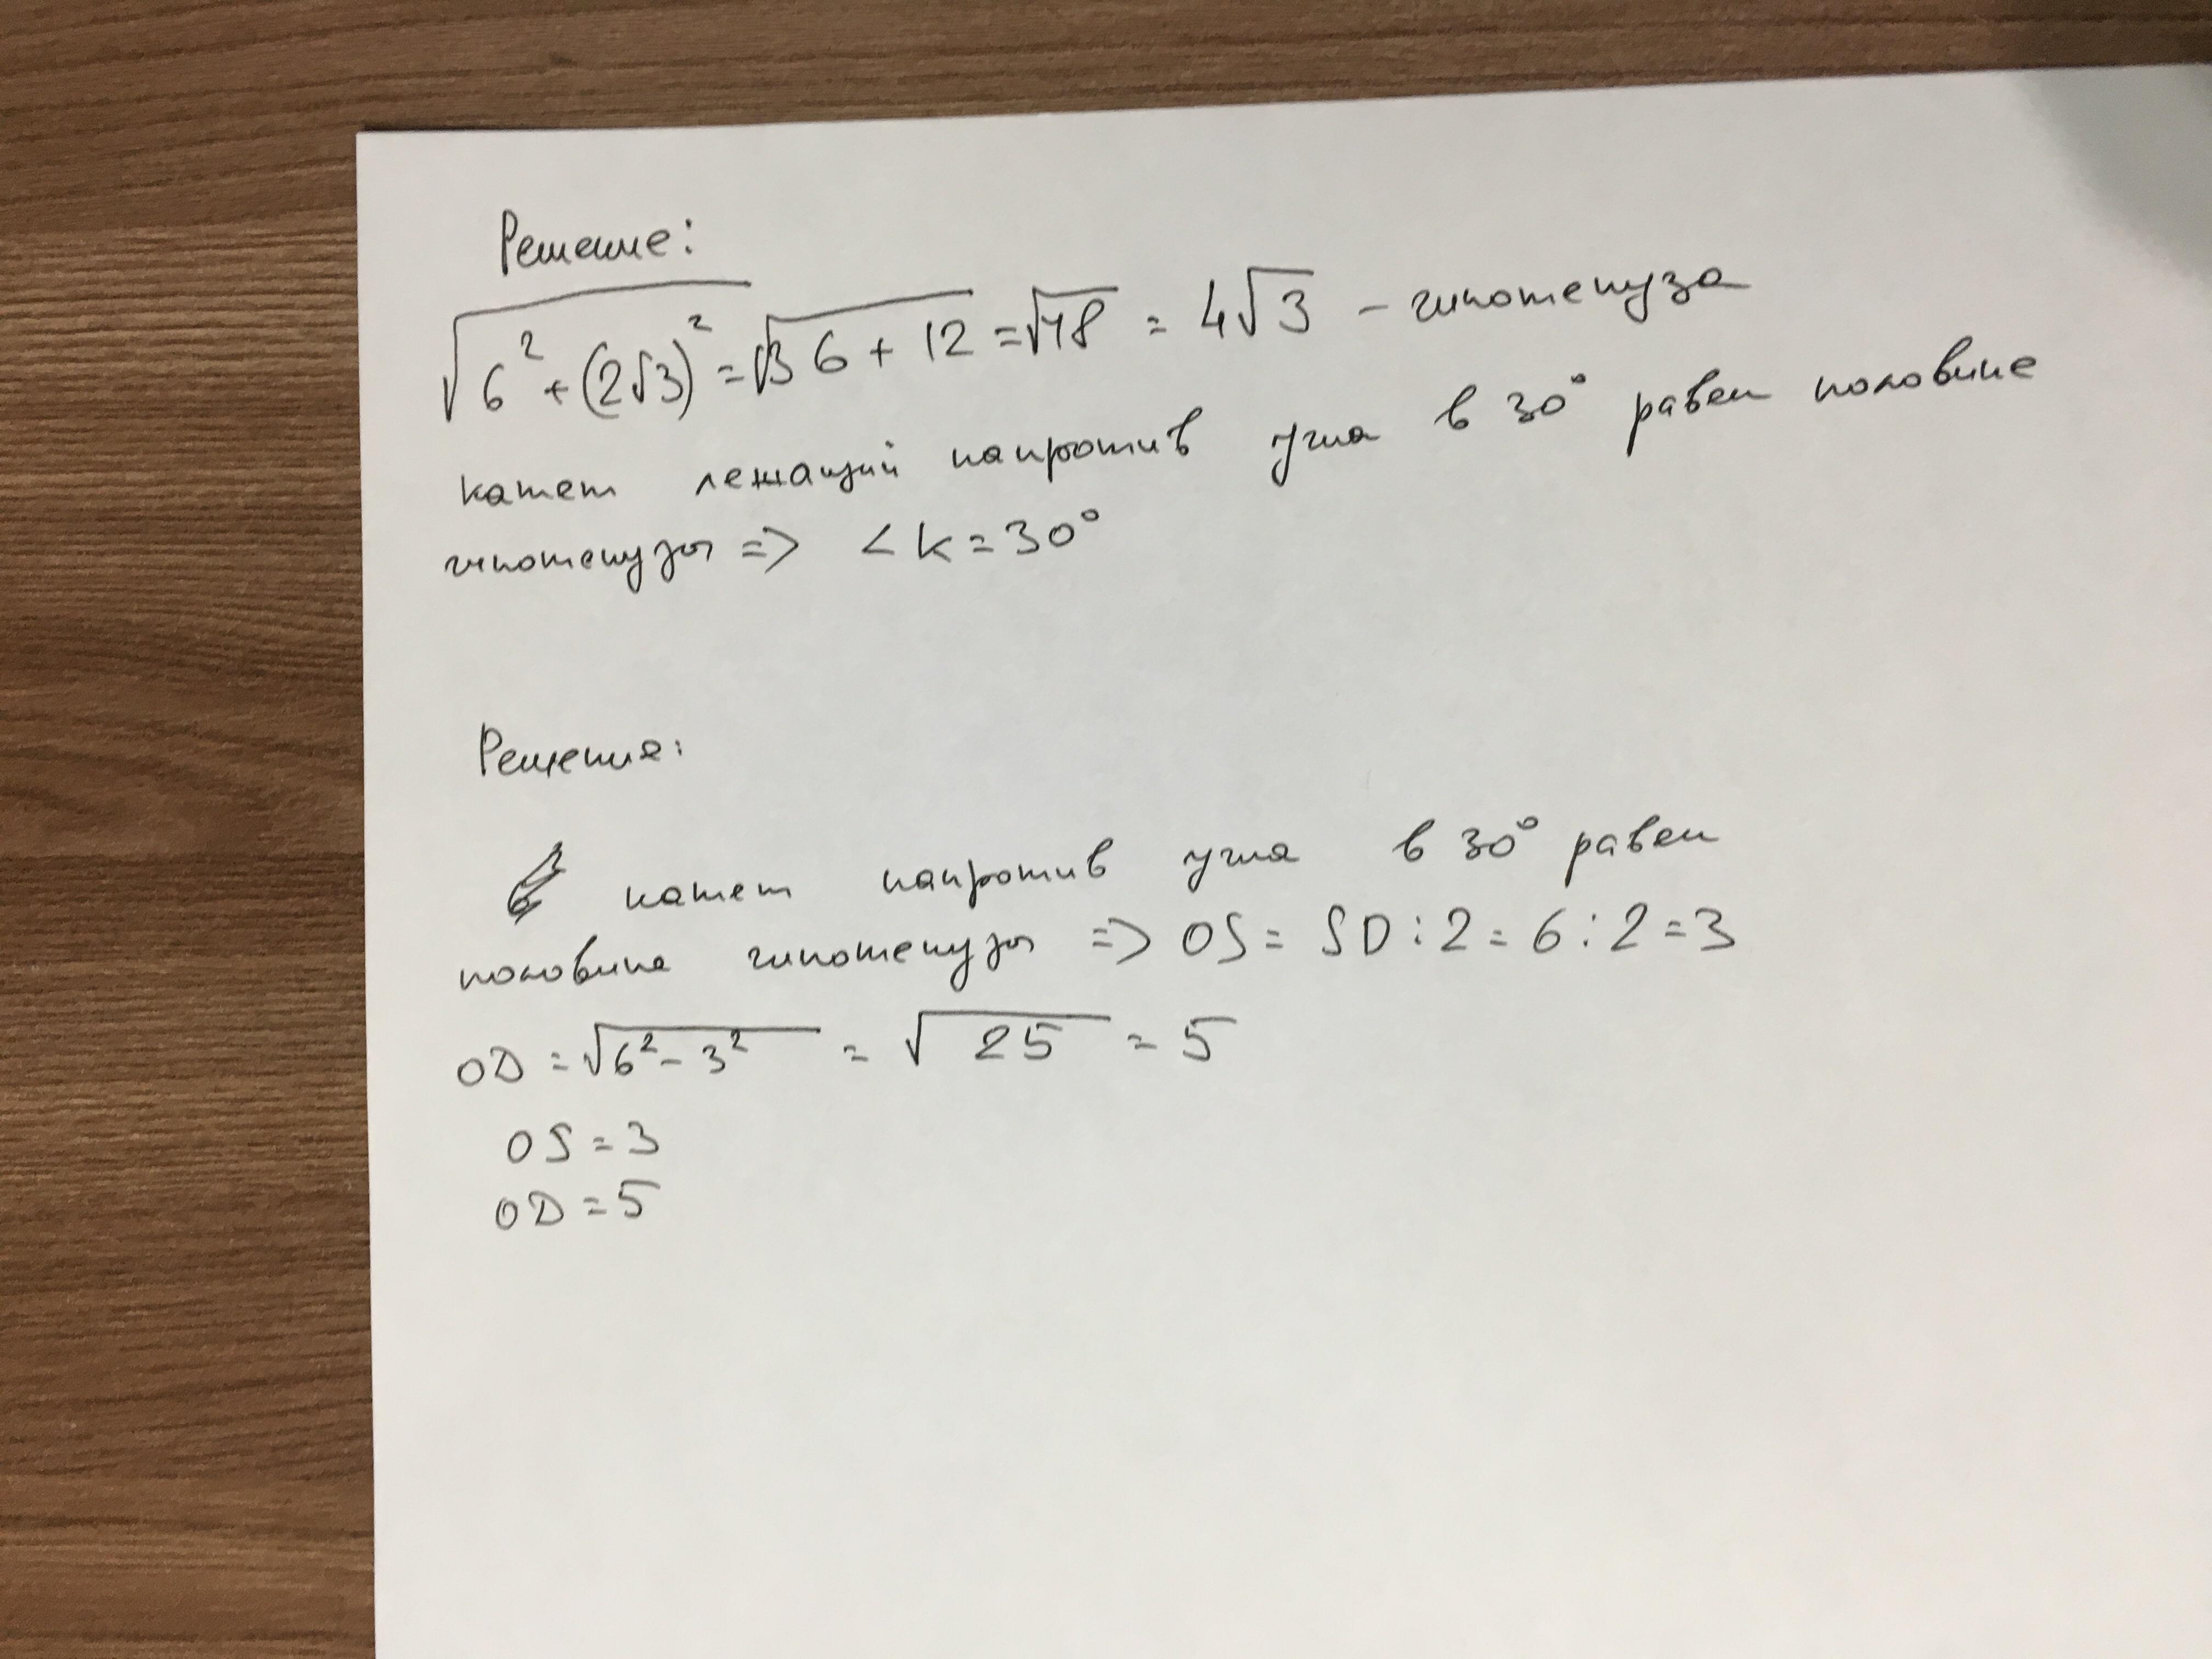 Решение:
√6² + (2√3)² = √36 + 12 = √48 = 4√3 - гипотенуза
катет лежащий напротив угла в 30° равен половине
гипотенузы => <K = 30°
Решение:
катет напротив угла в 30° равен
половине гипотенузы => OS = SD : 2 = 6 : 2 = 3
OD = √6² - 3² = √25 = 5
OS = 3
OD = 5